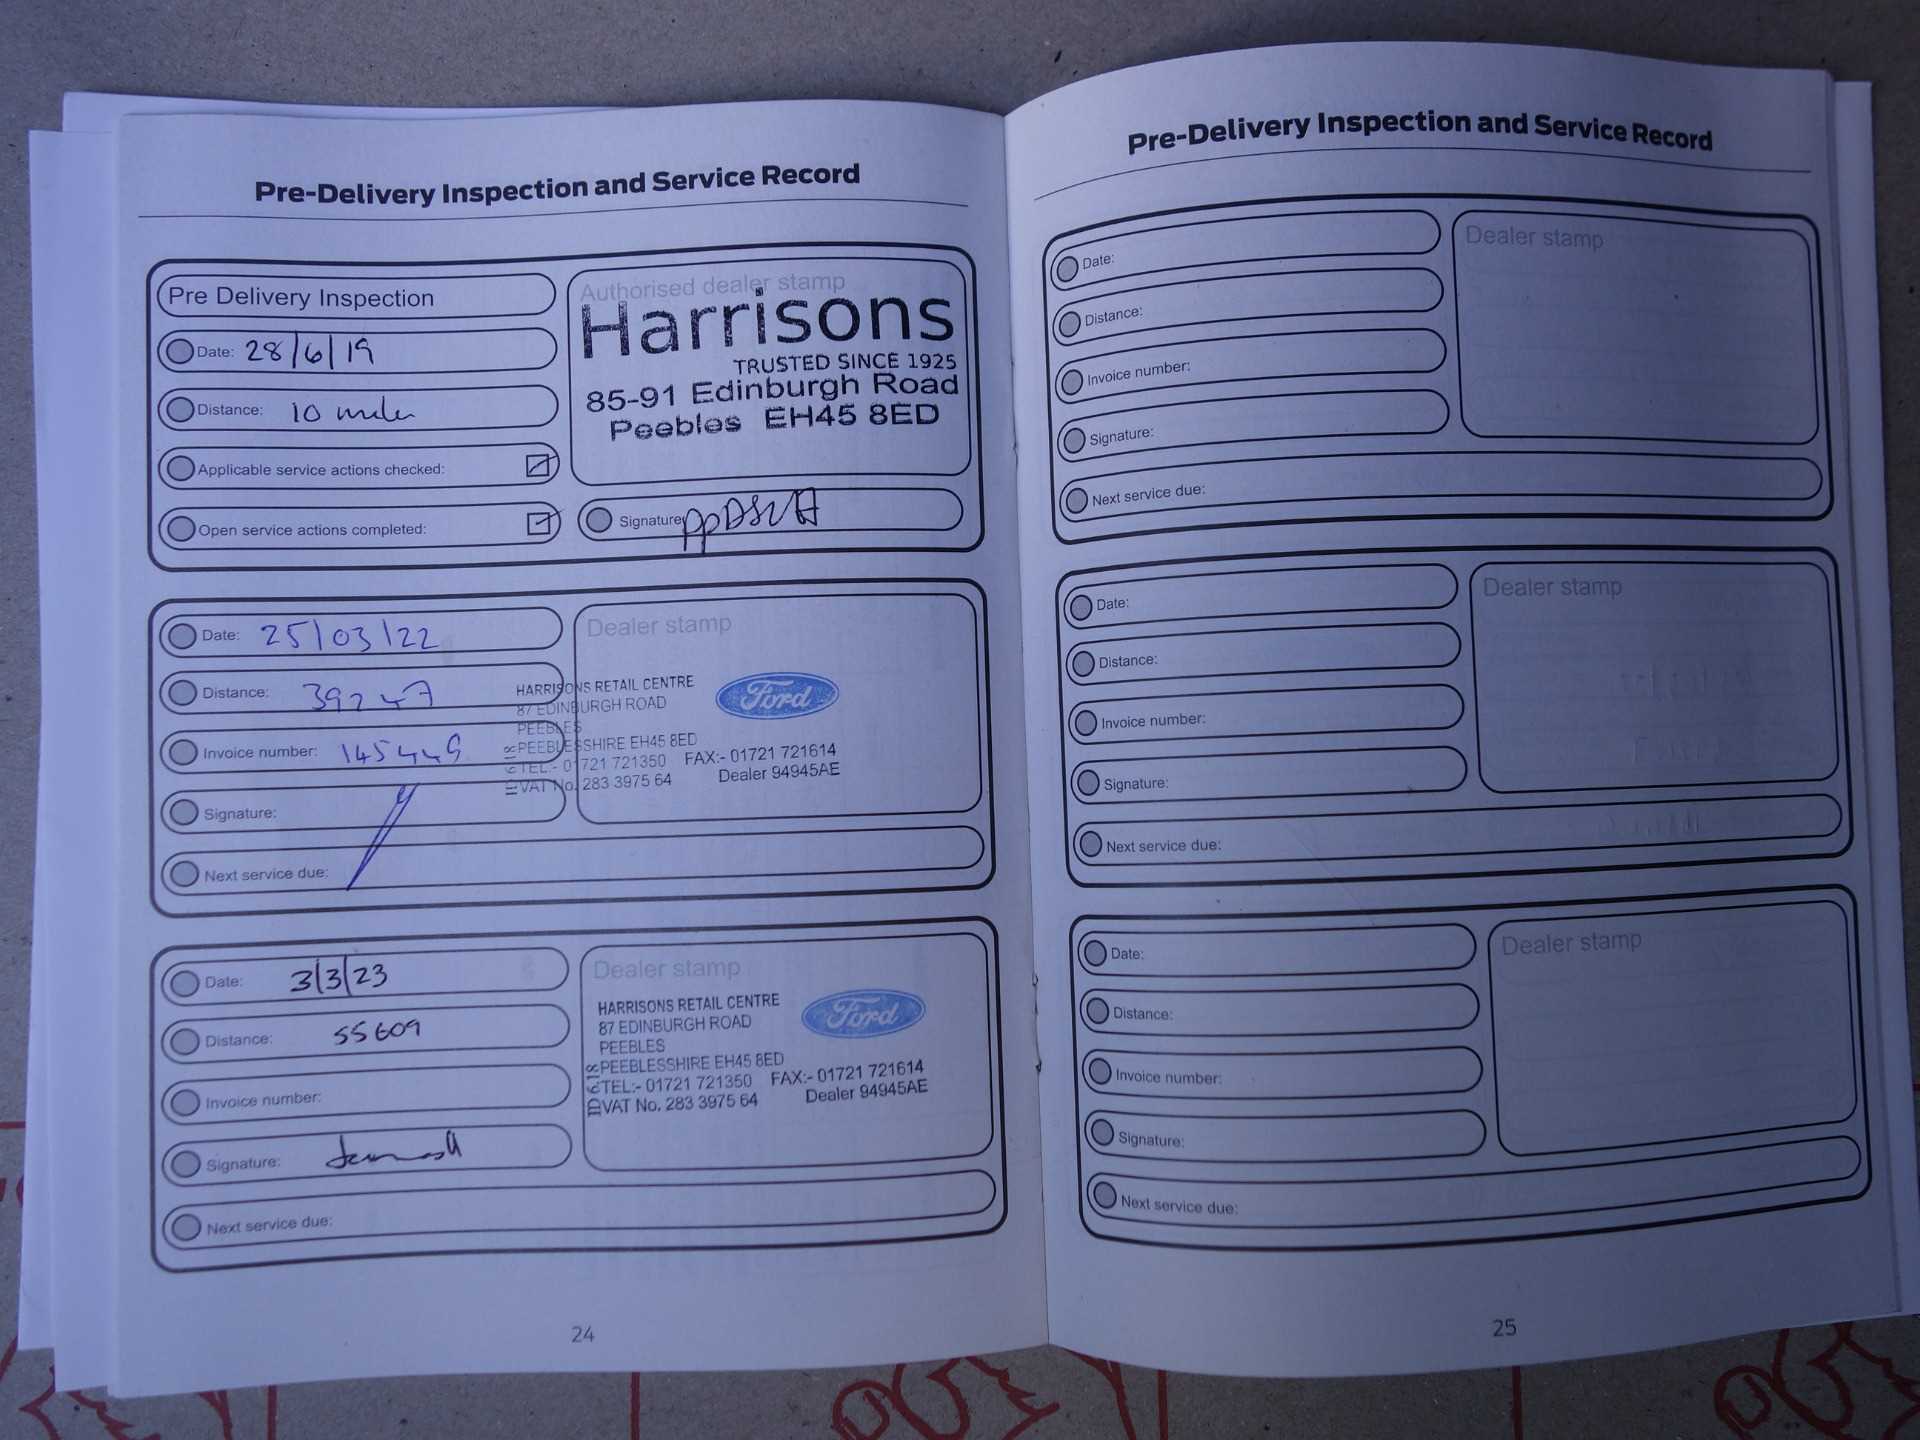 Pre-Delivery Inspection and Service Record
Pre Delivery Inspection
Date: 28/6/19
Distance: 10 miles
Applicable service actions checked:
Open service actions completed:
Authorised dealer stamp
Harrisons
TRUSTED SINCE 1925
85-91 Edinburgh Road
Peebles EH45 8ED
Signature:
Date: 25/03/22
Distance: 39247
Invoice number: 145449
Signature:
Next service due:
Dealer stamp
HARRISONS RETAIL CENTRE
87 EDINBURGH ROAD
PEEBLES
PEEBLESSHIRE EH45 8ED
TEL:- 01721 721350 FAX:- 01721 721614
VAT No. 283 3975 64 Dealer 94945AE
Ford
Date: 3/3/23
Distance: 55609
Invoice number:
Signature:
Next service due:
Dealer stamp
HARRISONS RETAIL CENTRE
87 EDINBURGH ROAD
PEEBLES
PEEBLESSHIRE EH45 8ED
TEL:- 01721 721350 FAX:- 01721 721614
VAT No. 283 3975 64 Dealer 94945AE
Ford
24
Pre-Delivery Inspection and Service Record
Date:
Distance:
Invoice number:
Signature:
Next service due:
Dealer stamp
Date:
Distance:
Invoice number:
Signature:
Next service due:
Dealer stamp
Date:
Distance:
Invoice number:
Signature:
Next service due:
Dealer stamp
25